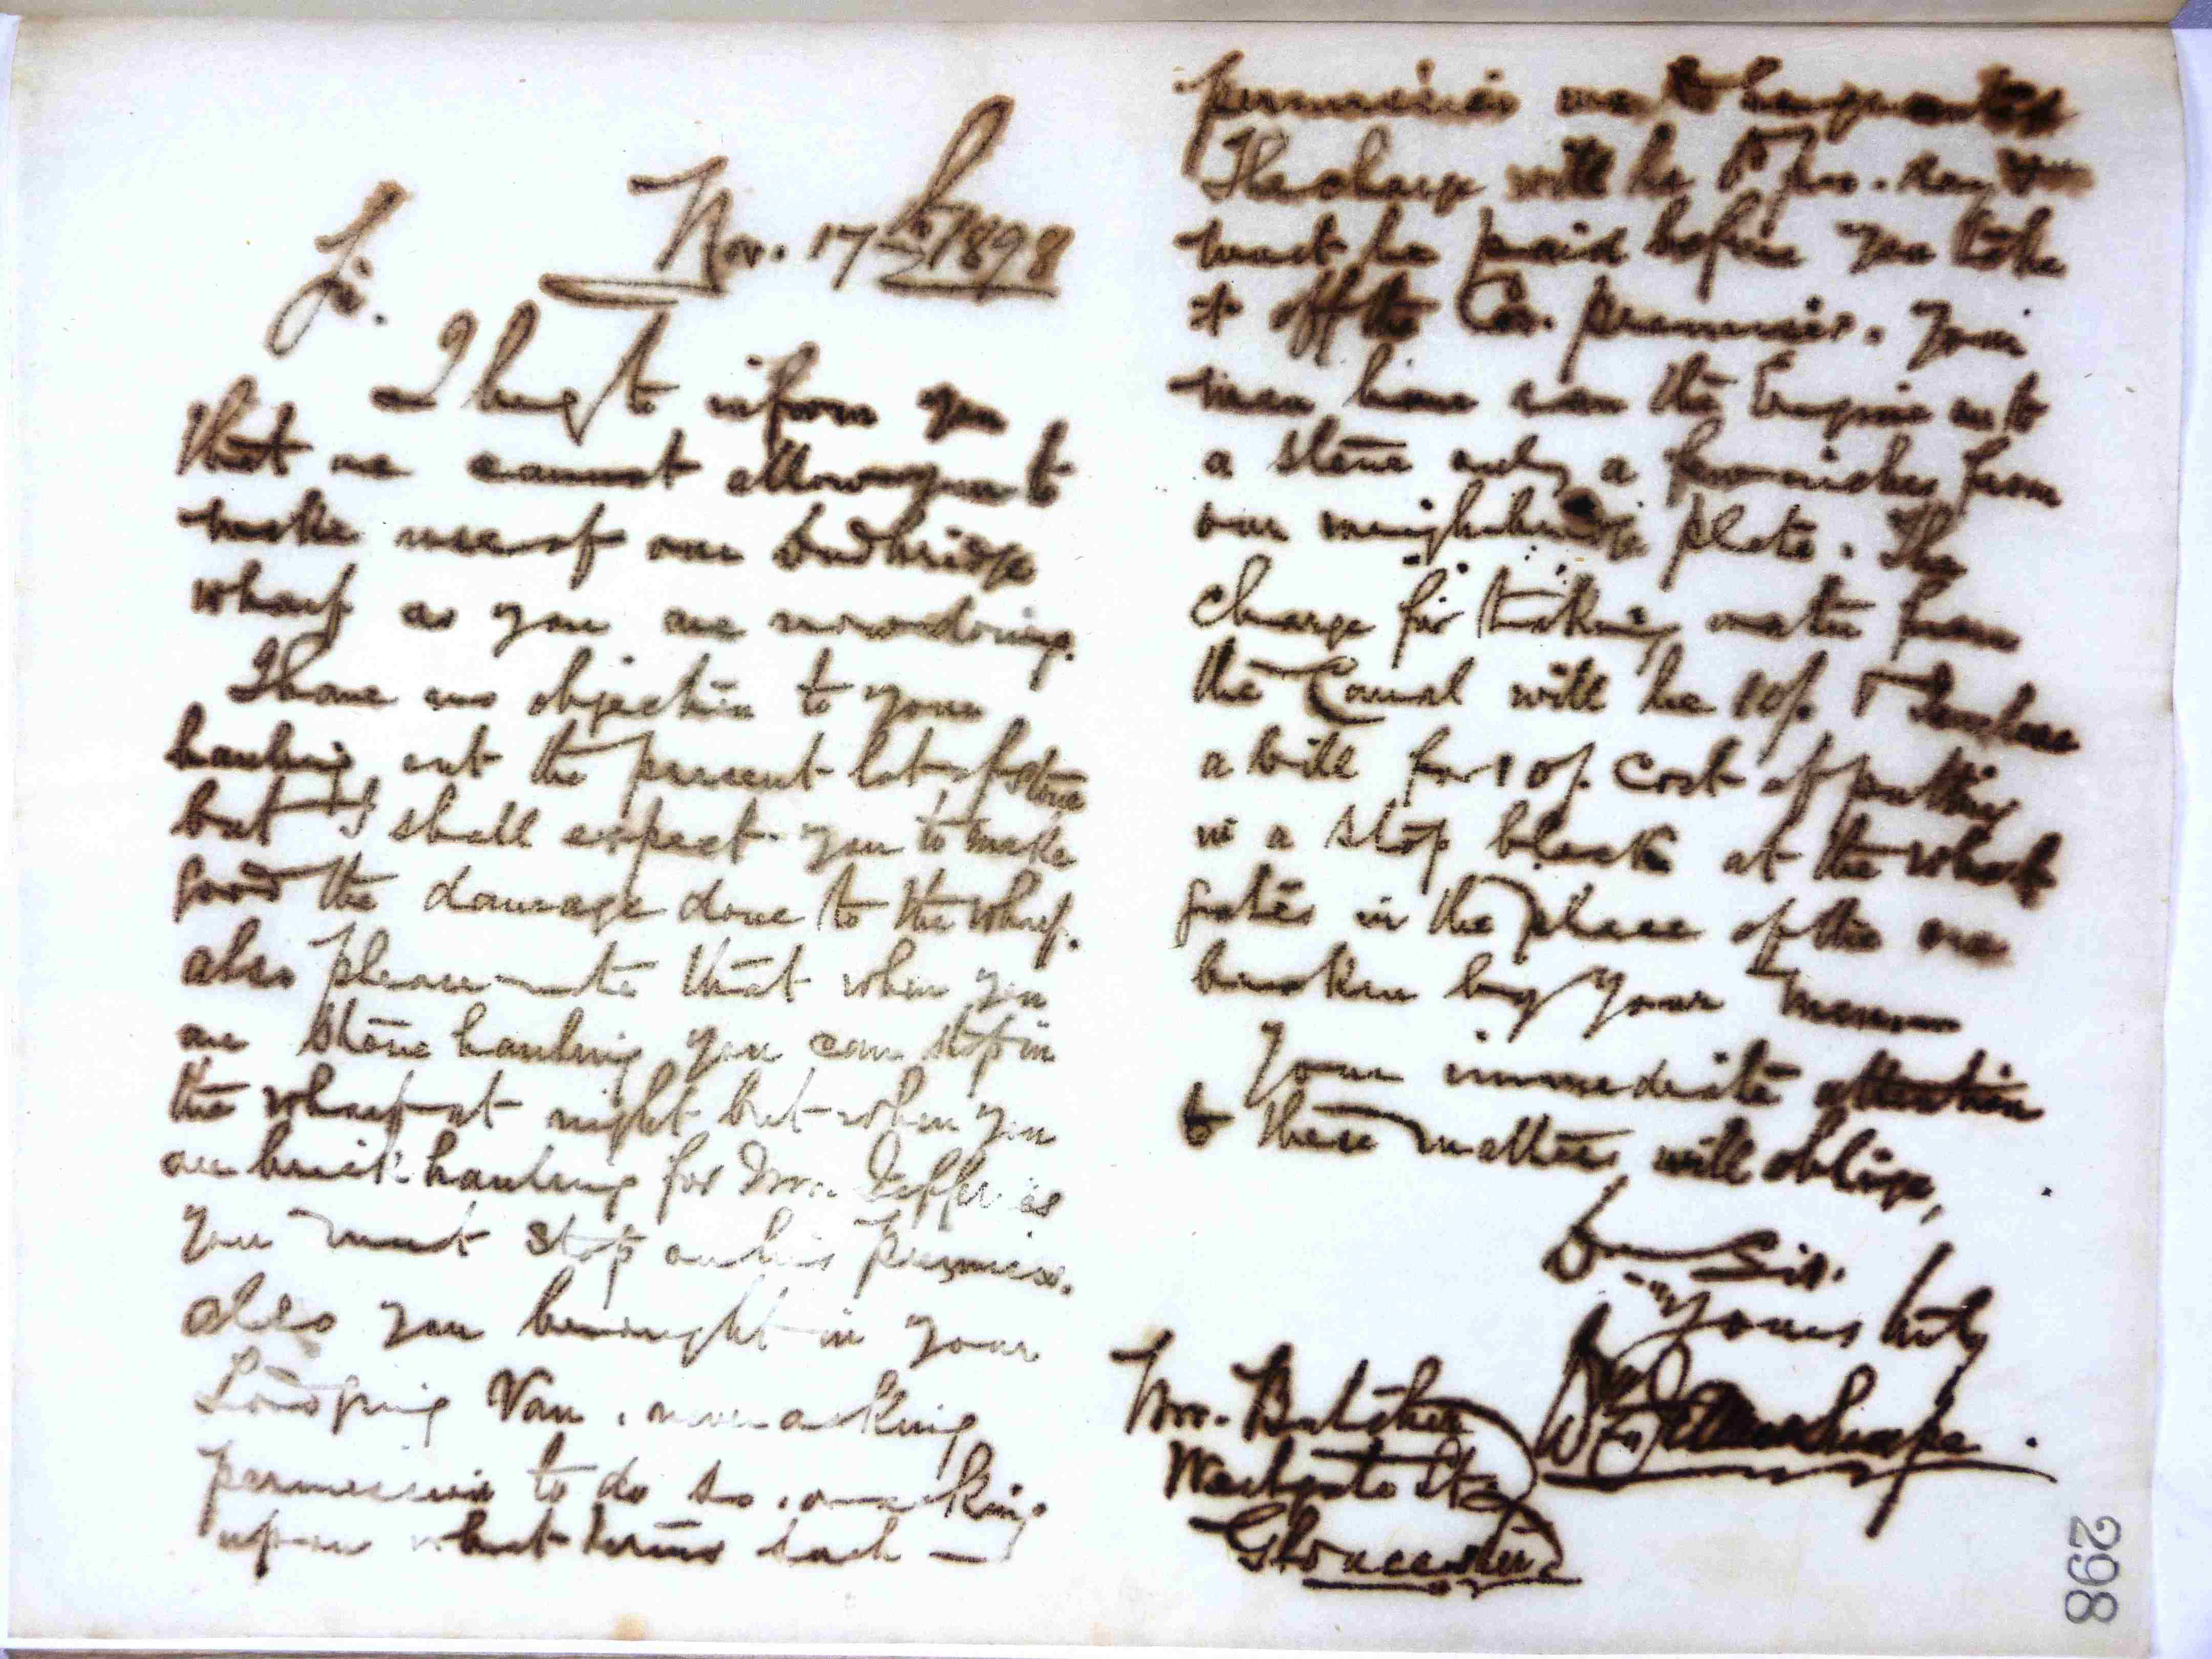 Nov. 17th 1898
Sir.
I beg to inform you
that we cannot allow you to
make use of our Dudbridge
wharf as you are now doing.
I have no objection to your
hauling out the present lot of stone
but I shall expect you to make
good the damage done to the wharf.
also please note that when you
are stone hauling you can stop in
the wharf at night but when you
are brick hauling for Mr. Jefferies
you must stop on his premises.
also you brought in your
Lodging Van, never asking
permission to do so, or asking
upon what terms such
permission was to be granted
The charge will be per day
must be paid before you take
it off the Co. premises. Your
men have run the Engine into
a stone only a few inches from
our weighbridge plate. The
charge for taking water from
the Canal will be 10/- I enclose
a bill for 10/- cost of putting
in a stop block at the wharf
gates in the place of the one
broken by your men
Your immediate attention
to these matters will oblige,
Dr Sir.
Yours truly
W J Snape.
Mr. Butcher
Westgate St
Gloucester
298